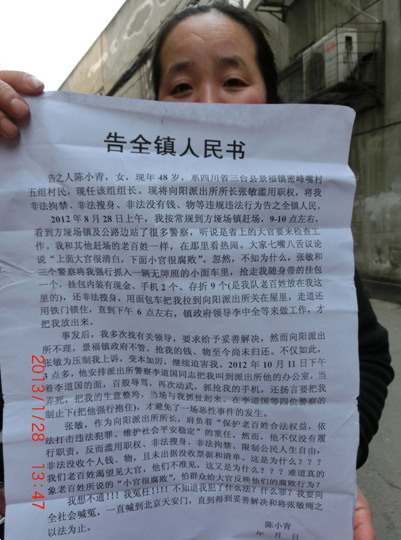 告全镇人民书
告之人陈小青，女，现年 48 岁，系四川省三台县景福镇密峰嘴村
五组村民，现任该组组长。现将向阳派出所所长张敏滥用职权，将我
非法拘禁、非法搜身、非法没有钱、物等违规违法行为告之全镇人民。
2012 年 8 月 28 日上午，我按常规到方垭场镇赶场，9-10 点左右，
看到方垭场镇及公路边站了很多警察，听说是省上的大官要来检查工
作。我和其他赶场的老百姓一样，在那里看热闹。大家七嘴八舌议论
说“上面大官很清白，下面小官很腐败”。忽然，不知为什么，张敏和
三个警察将我强行抓入一辆无牌照的小面车里，抢走我随身带的挂包
一个，挂包内装有现金、手机 2 个、存折 9 个(是我队老百姓放在我这
里的)，还非法搜身，用面包车把我拉到向阳派出所关在屋里，走道还
用铁门锁住，直到下午 6 点左右，镇政府领导李中全等来做工作，才
把我放出来。
事发后，我多次找有关领导，要求给予妥善解决，然而向阳派出
所不理，景福镇政府不管，抢我的钱、物至今尚未归还。不仅如此，
张敏为压制我上诉，变本加厉，继续迫害我。2012 年 10 月 11 日下午
3 点多，他安排派出所警察李道国同志把我叫到派出所他的办公室，当
着李道国的面，百般辱骂，再次动武，抓抢我的手机，还扬言要把我
弄死，把我的生意整垮，当场与我抓扯起来。在李道国等四位警察的
制止下(把他强行抱住)，才避免了一场恶性事件的发生。
张敏，作为向阳派出所所长，肩负着“保护老百姓合法权益，依
法打击违法犯罪、维护社会平安稳定”的重任。然而，他不仅没有履
行职责，反而滥用职权、非法搜身、非法拘禁、限制公民人生自由，
非法没收个人钱、物，且未出据没收票据和清单。这是为什么？？？
我们老百姓渴望见大官，他们不准见，这又是为什么？？？难道真的
象老百姓所说的“小官很腐败”，怕群众给大官反映他们的腐败行为？
我想不通！！！我冤枉！！！不知道我犯了什么法？什么罪？我要向
全社会喊冤，一直喊到北京天安门，直到得到妥善解决和将张敏绳之
以法为止。
陈小青
年 月 日
2013/11/28 13:47